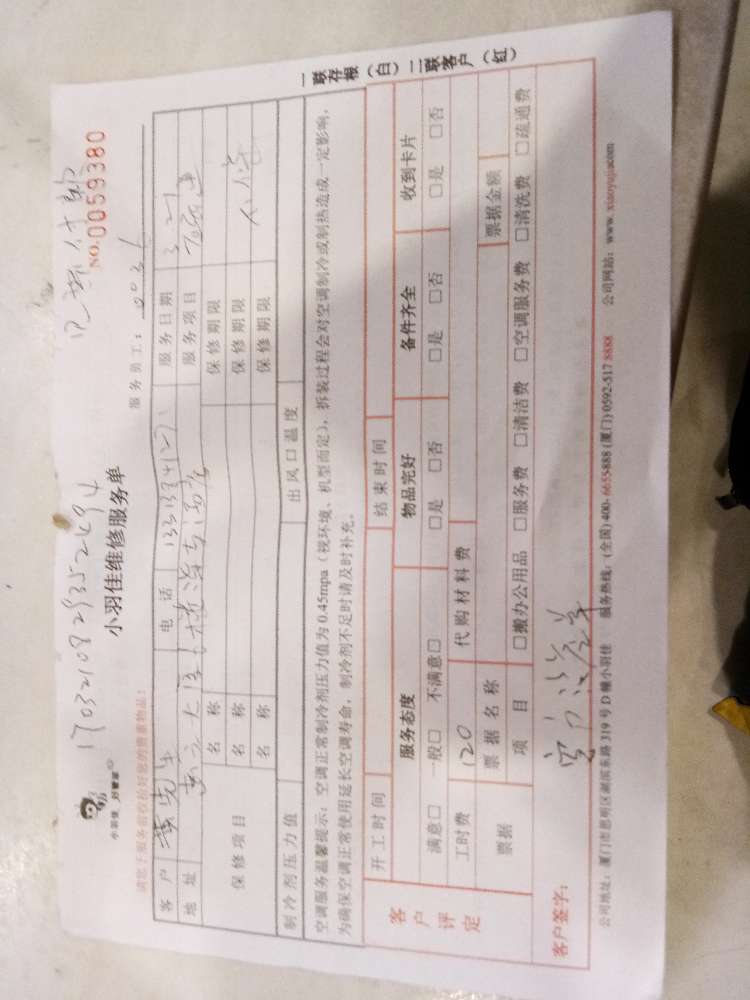 1703210829352494
小羽佳 好管家
小羽佳维修服务单
NO.0059380
请您于服务前收检好您的贵重物品！
服务员工：
客户
电话
服务日期 3.21
地址
服务项目
保修项目
名称
保修期限
名称
保修期限
名称
保修期限
制冷剂压力值
出风口温度
空调服务温馨提示：空调正常制冷剂压力值为0.45mpa（视环境、机型而定），拆装过程会对空调制冷或制热造成一定影响，
为确保空调正常使用延长空调寿命，制冷剂不足时请及时补充。
客户评定
开工时间
结束时间
服务态度
物品完好
备件齐全
收到卡片
满意□ 一般□ 不满意□
□是 □否
□是 □否
□是 □否
工时费 120
代购材料费
票据
票据名称
票据金额
项目
□搬办公用品 □服务费 □清洁费 □空调服务费 □清洗费 □疏通费
客户签字：
公司地址：厦门市思明区湖滨东路319号D幢小羽佳 服务热线：(全国)400-6655-888 (厦门)0592-517 8888 公司网站：www.xiaoyujia.com
一联存根（白）二联客户（红）